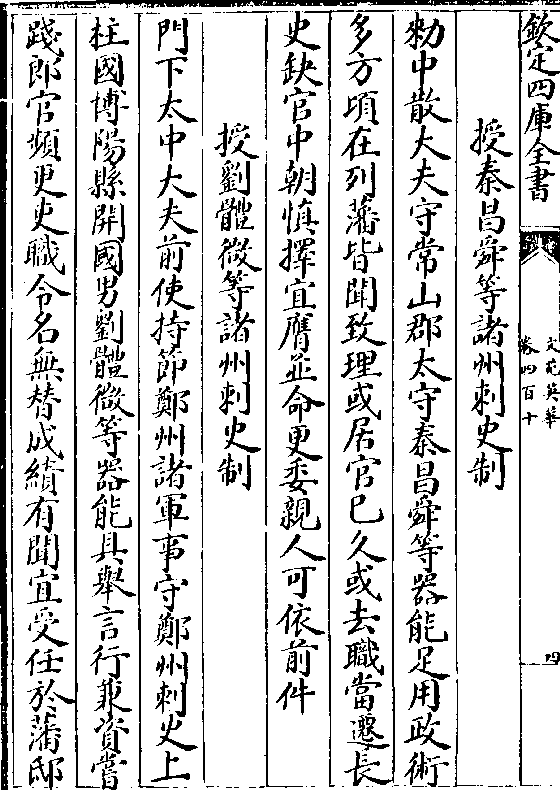 欽定四庫全書
文苑英華
卷四百十
四
授秦昌舜等諸州刺史制
勑中散大夫守常山郡太守秦昌舜等器能足用政術
多方頃在列藩皆聞致理或居官已久或去職當遷長
史缺官中朝慎擇宜膺並命更委親人可依前件
授劉體微等諸州刺史制
門下太中大夫前使持節鄭州諸軍事守鄭州刺史上
柱國博陽縣開國男劉體微等器能具舉言行兼資嘗
踐郎官頻更吏職令名無替成績有聞宜受任於藩邸